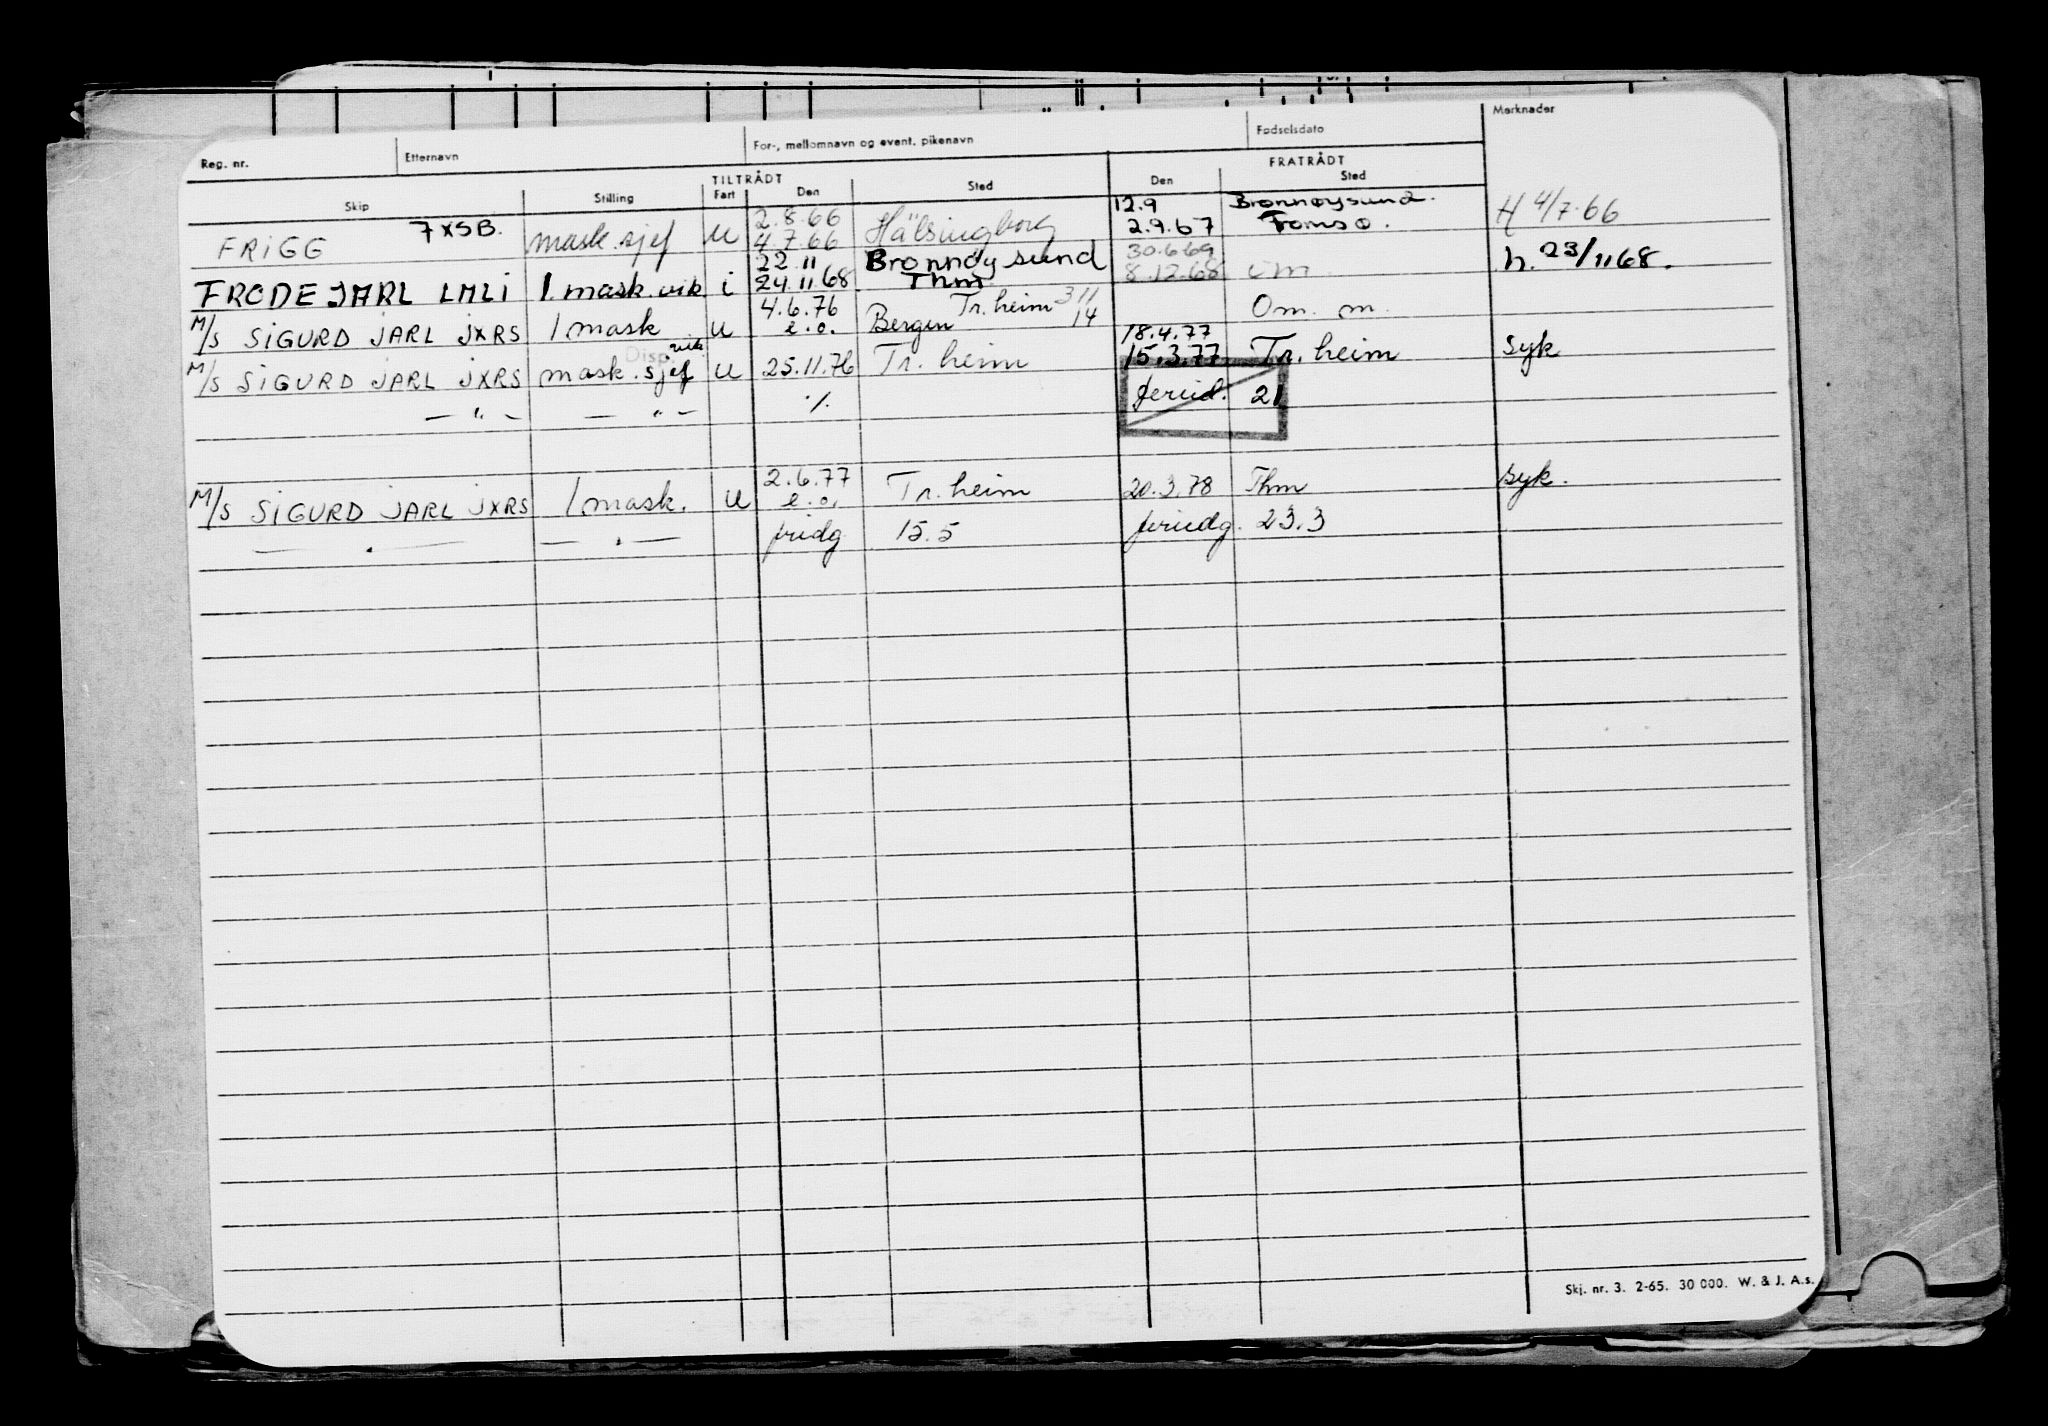 Reg. nr. Etternavn For-, mellomnavn og event. pikenavn Fødselsdato Merknader
TILTRÅDT FRATRÅDT
Skip Stilling Fart Den Sted Den Sted
2.8.66 12.9 Brønnøysund.
FRIGG 7XSB. mask.sjef u 4.7.66 Hälsingborg 2.9.67 Tomsø. H 4/7.66
22.11 Brønnøysund 30.6.69
FRODE JARL LMLI 1. mask.vik. i 24.11.68 Thm 8.12.68 um h. 23/11 68.
4.6.76 Tr.heim 3/11
M/S SIGURD JARL JXRS 1 mask u e.o. Bergen 14 Om. m.
Disp. vik 18.4.77
M/S SIGURD JARL JXRS mask.sjef u 25.11.76 Tr. heim 15.3.77 Tr. heim syk
— " — — " — ./. 21
2.6.77
M/S SIGURD JARL JXRS 1 mask. u e.o. Tr. heim 20.3.78 Thm syk.
— " — — " — fridg 15.5 feriedg. 23.3
Skj. nr. 3. 2-65. 30 000. W. & J. A.s.